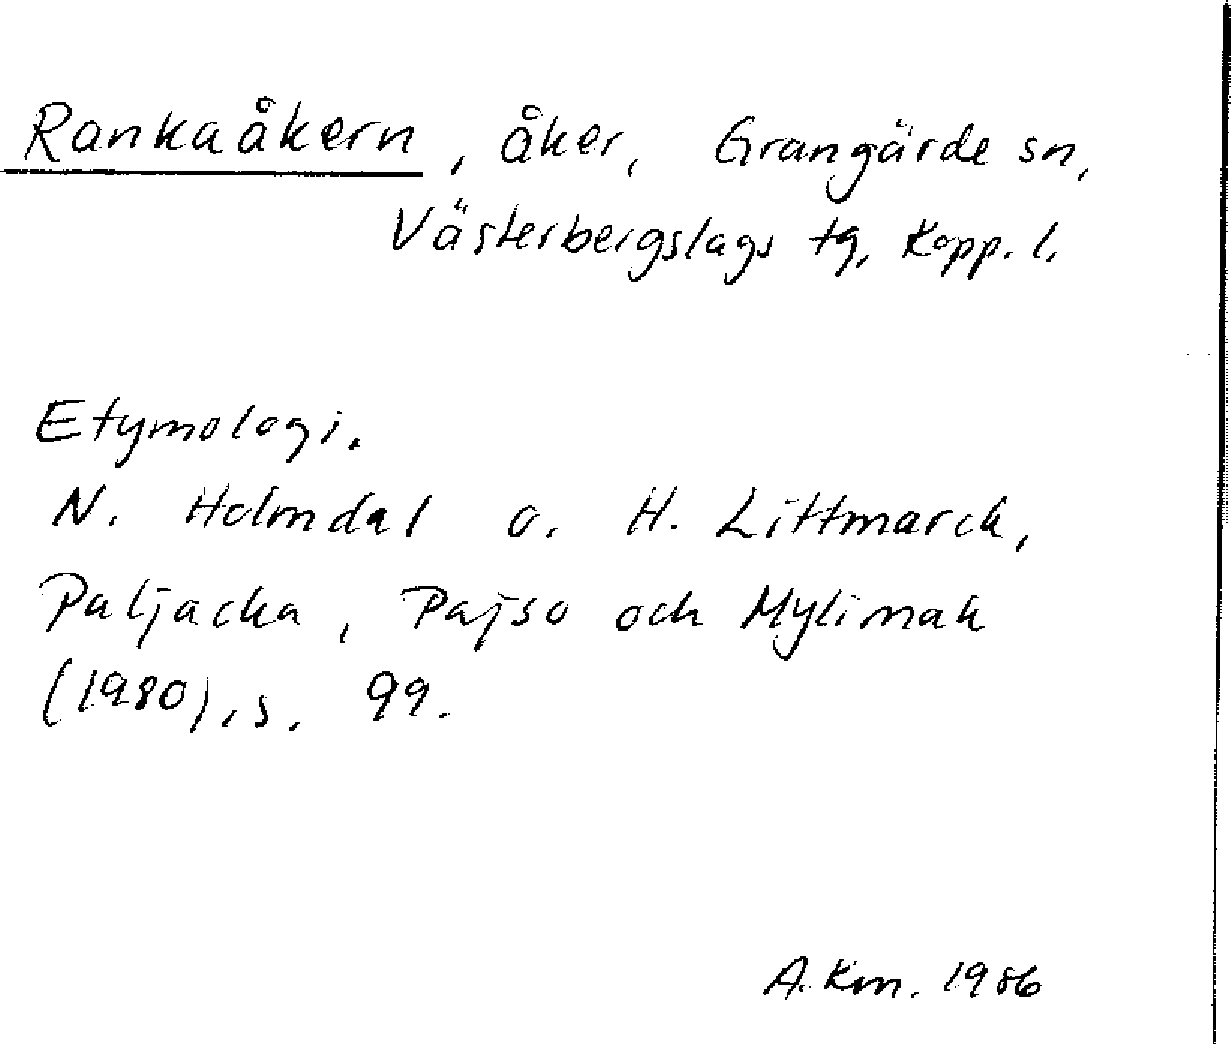 Rankaåkern, åker, Grangärde sn,
Västerbergslags tg, Kopp. l.
Etymologi.
N. Holmdal o. H. Littmarck,
Paljacka, Pajso och Mylimak
(1980), s. 99.
A. Km. 1986